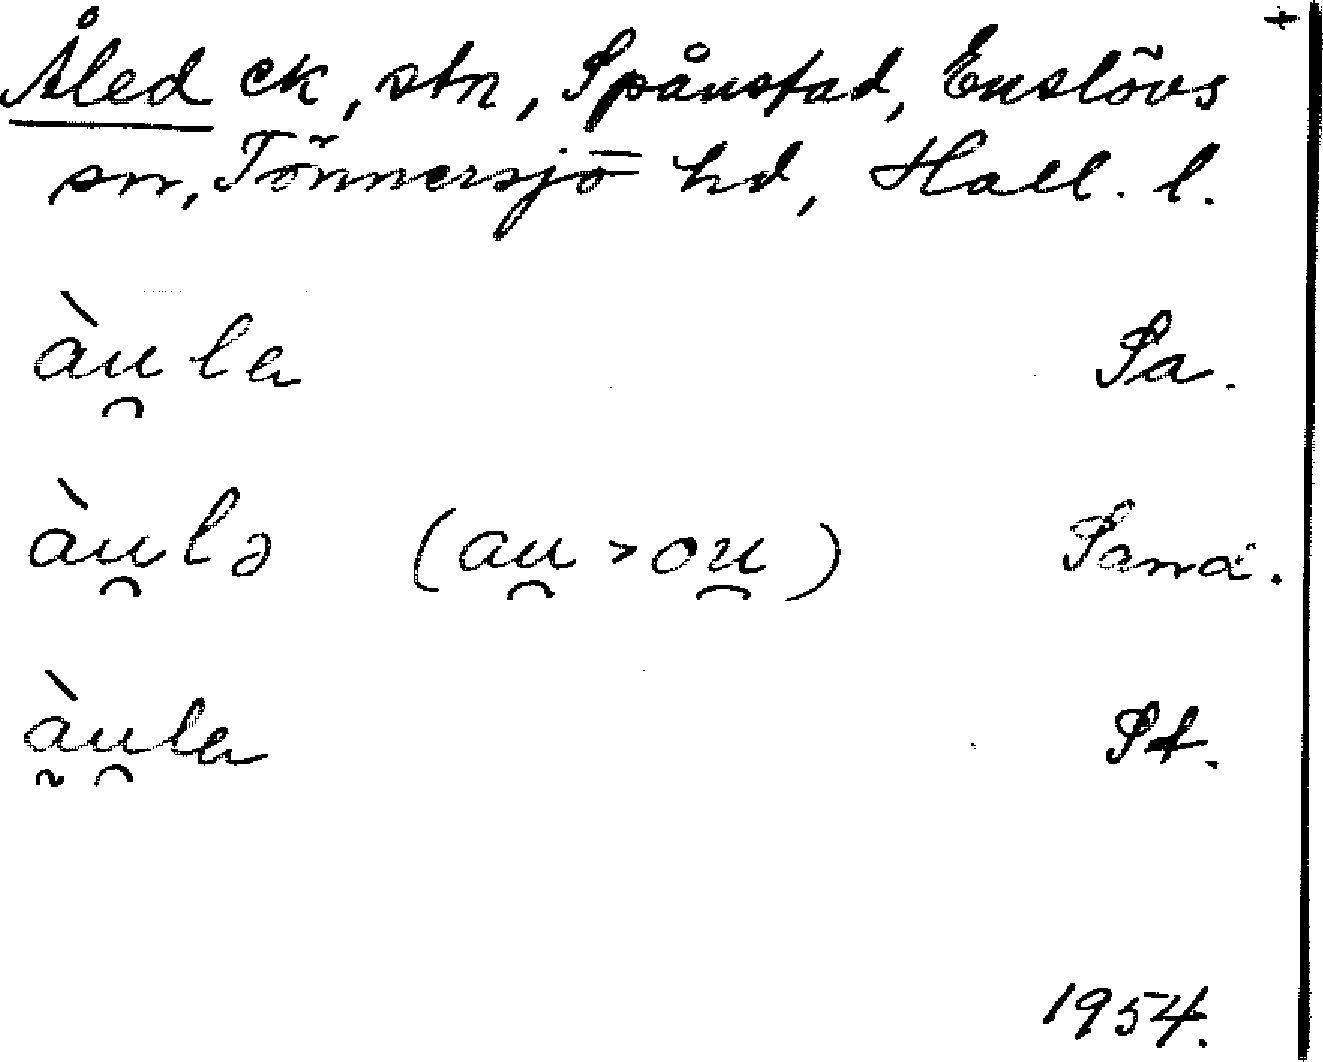 +
Åled ck, stn, Spånstad, Enslövs
sn, Tönnersjö hd, Hall. l.
àu̯la Sa.
àu̯lə (au̯ > ou̯) Sand.
à̰u̯la St.
1954.